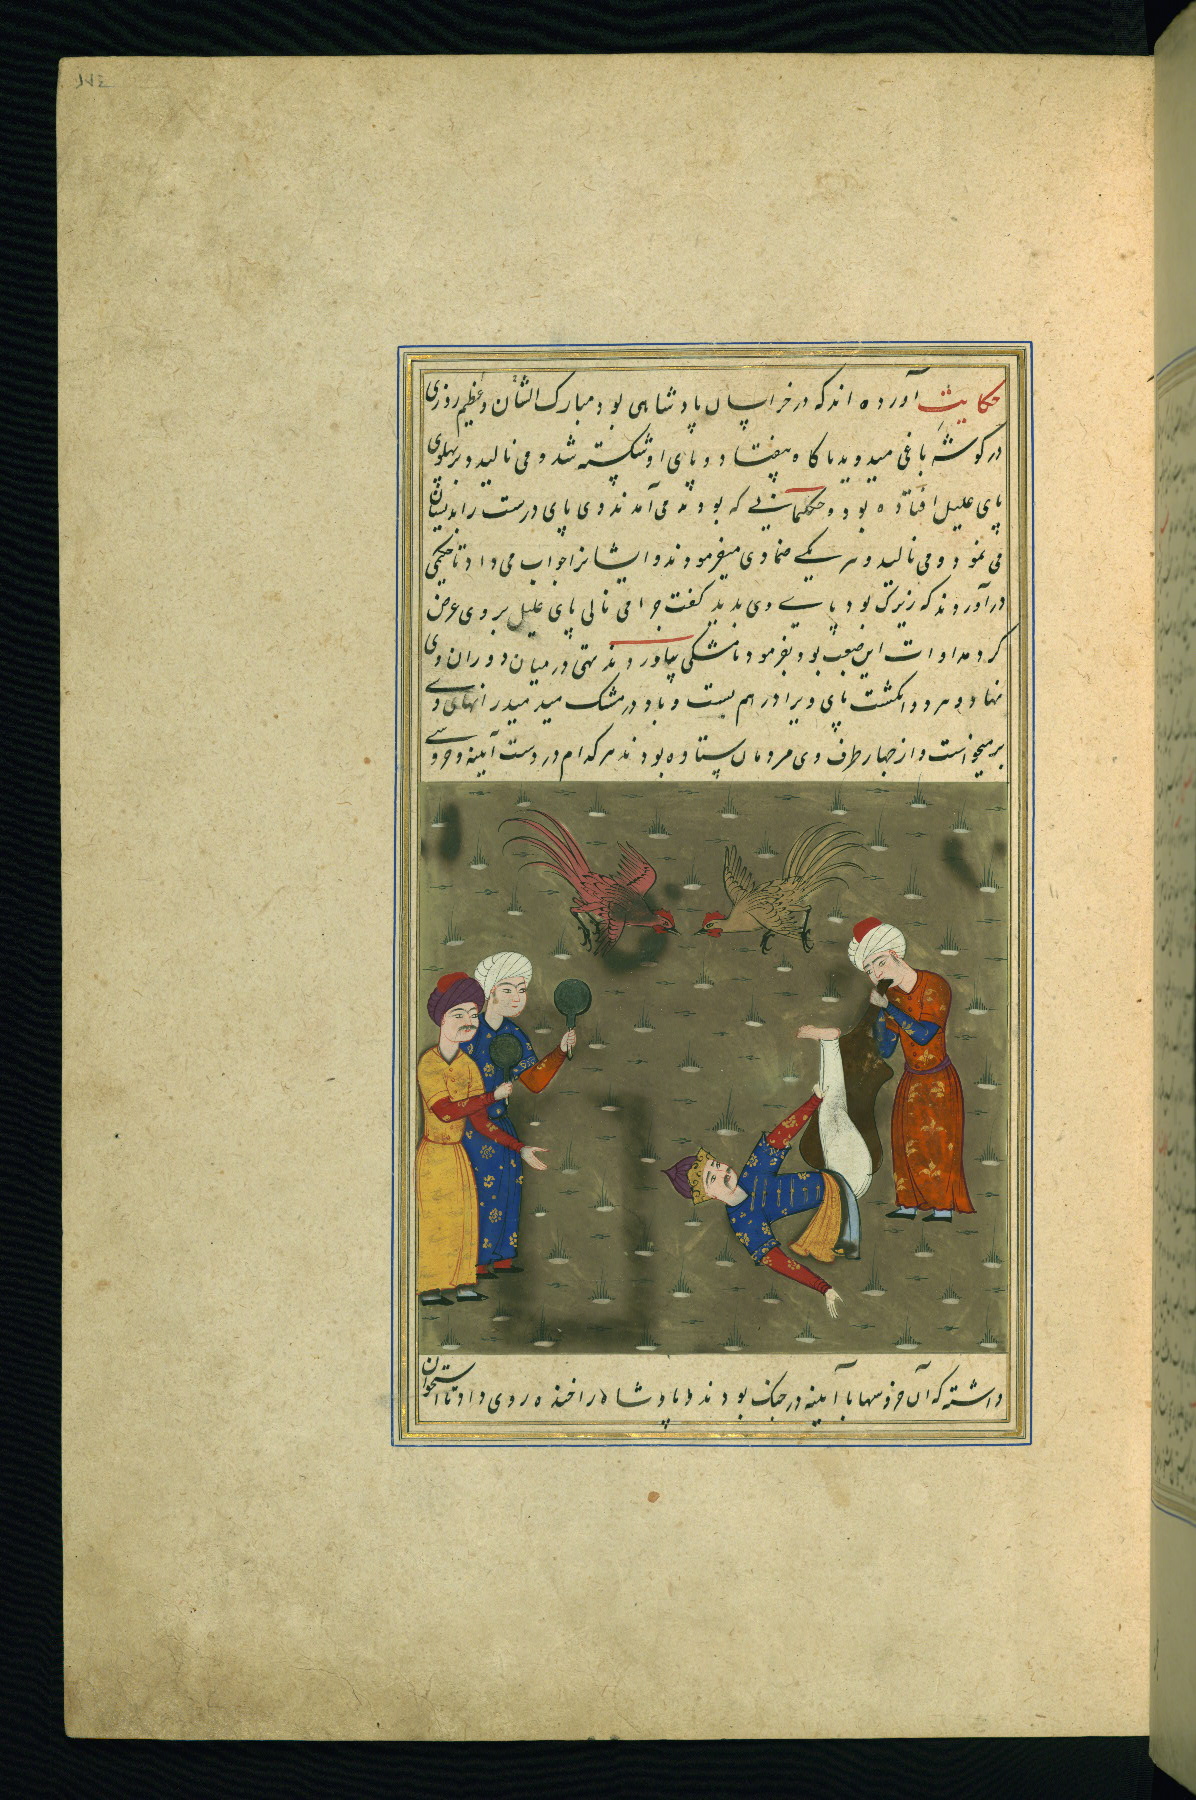 ١٧٤
حکایت آورده اند که در خراسان پادشاهی بود مبارک الشأن و عظیم روزی
در کوشه باغی میدوید ناکاه بیفتاد و پای او شکسته شد و می نالید و بر پهلوی
پای علیل افتاده بود و حکیمانی که بودند می آمدند و وی پای درست را بدیشان
می نمود و می نالید و هر یکی ضمادی میفرمودند و ایشانرا جواب می داد تا حکیمی
در آوردند که زیرک بود پای وی بدید کفت چرا می نالی پای علیل بر وی عرض
کرد مداوات این صعب بود بفرمود تا مشکی بیاوردند تهی در میان دو ران وی
نهاد و هر دو انکشت پای ویرا در هم بست و باد در مشک میدمید رانهای وی
برمیخواست و از چهار طرف وی مردمان ستاده بودند هر کدام در دست آیینه و خروسی
داشته که آن خروسها با آیینه در جنک بودند و پادشاه را خنده روی داد تا استخوان